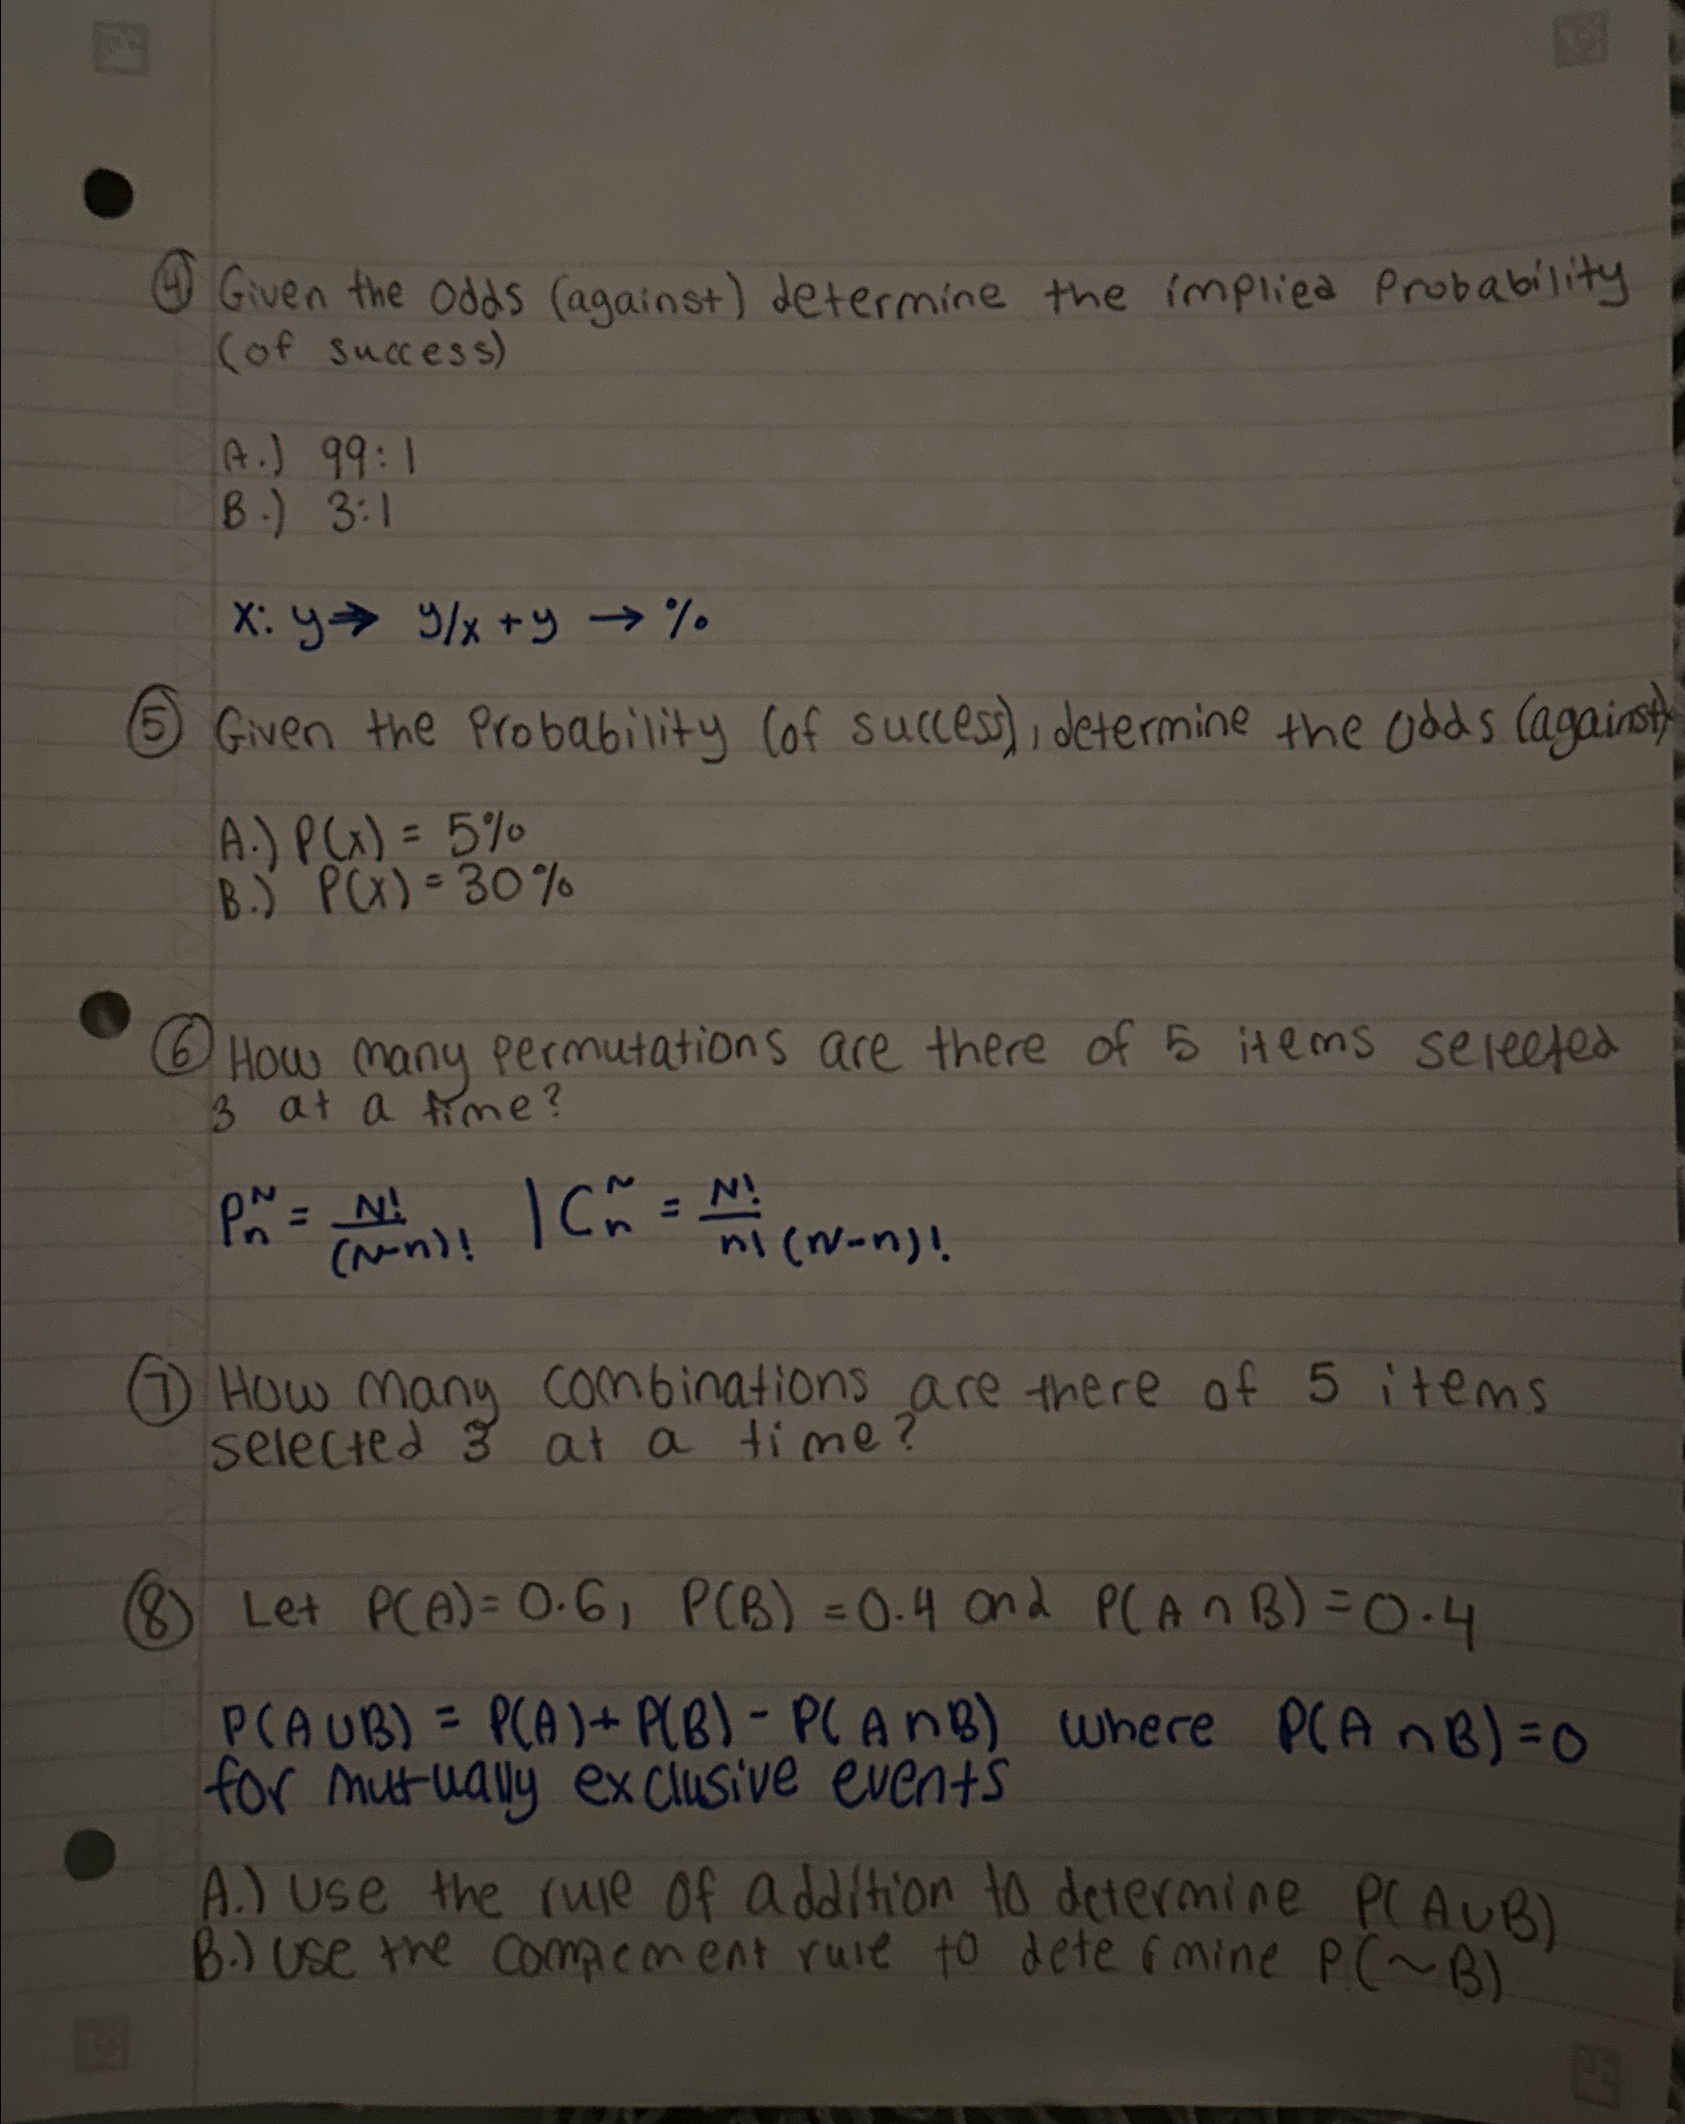 ④ Given the odds (against) determine the implied Probability
(of success)
A.) 99:1
B.) 3:1
x: y⇒ y/x + y → %
⑤ Given the Probability (of success), determine the odds (against)
A.) P(x) = 5%
B.) P(x) = 30%
⑥ How many permutations are there of 5 items selected
3 at a time?
Pₙᴺ = N!/(N-n)! | Cₙᴺ = N!/n!(N-n)!
⑦ How many combinations are there of 5 items
selected 3 at a time?
⑧ Let P(A)=0.6, P(B) = 0.4 and P(A∩B) = 0.4
P(A∪B) = P(A)+P(B)-P(A∩B) where P(A∩B)=0
for mutually exclusive events
A.) Use the rule of addition to determine P(A∪B)
B.) use the complement rule to determine P(~B)